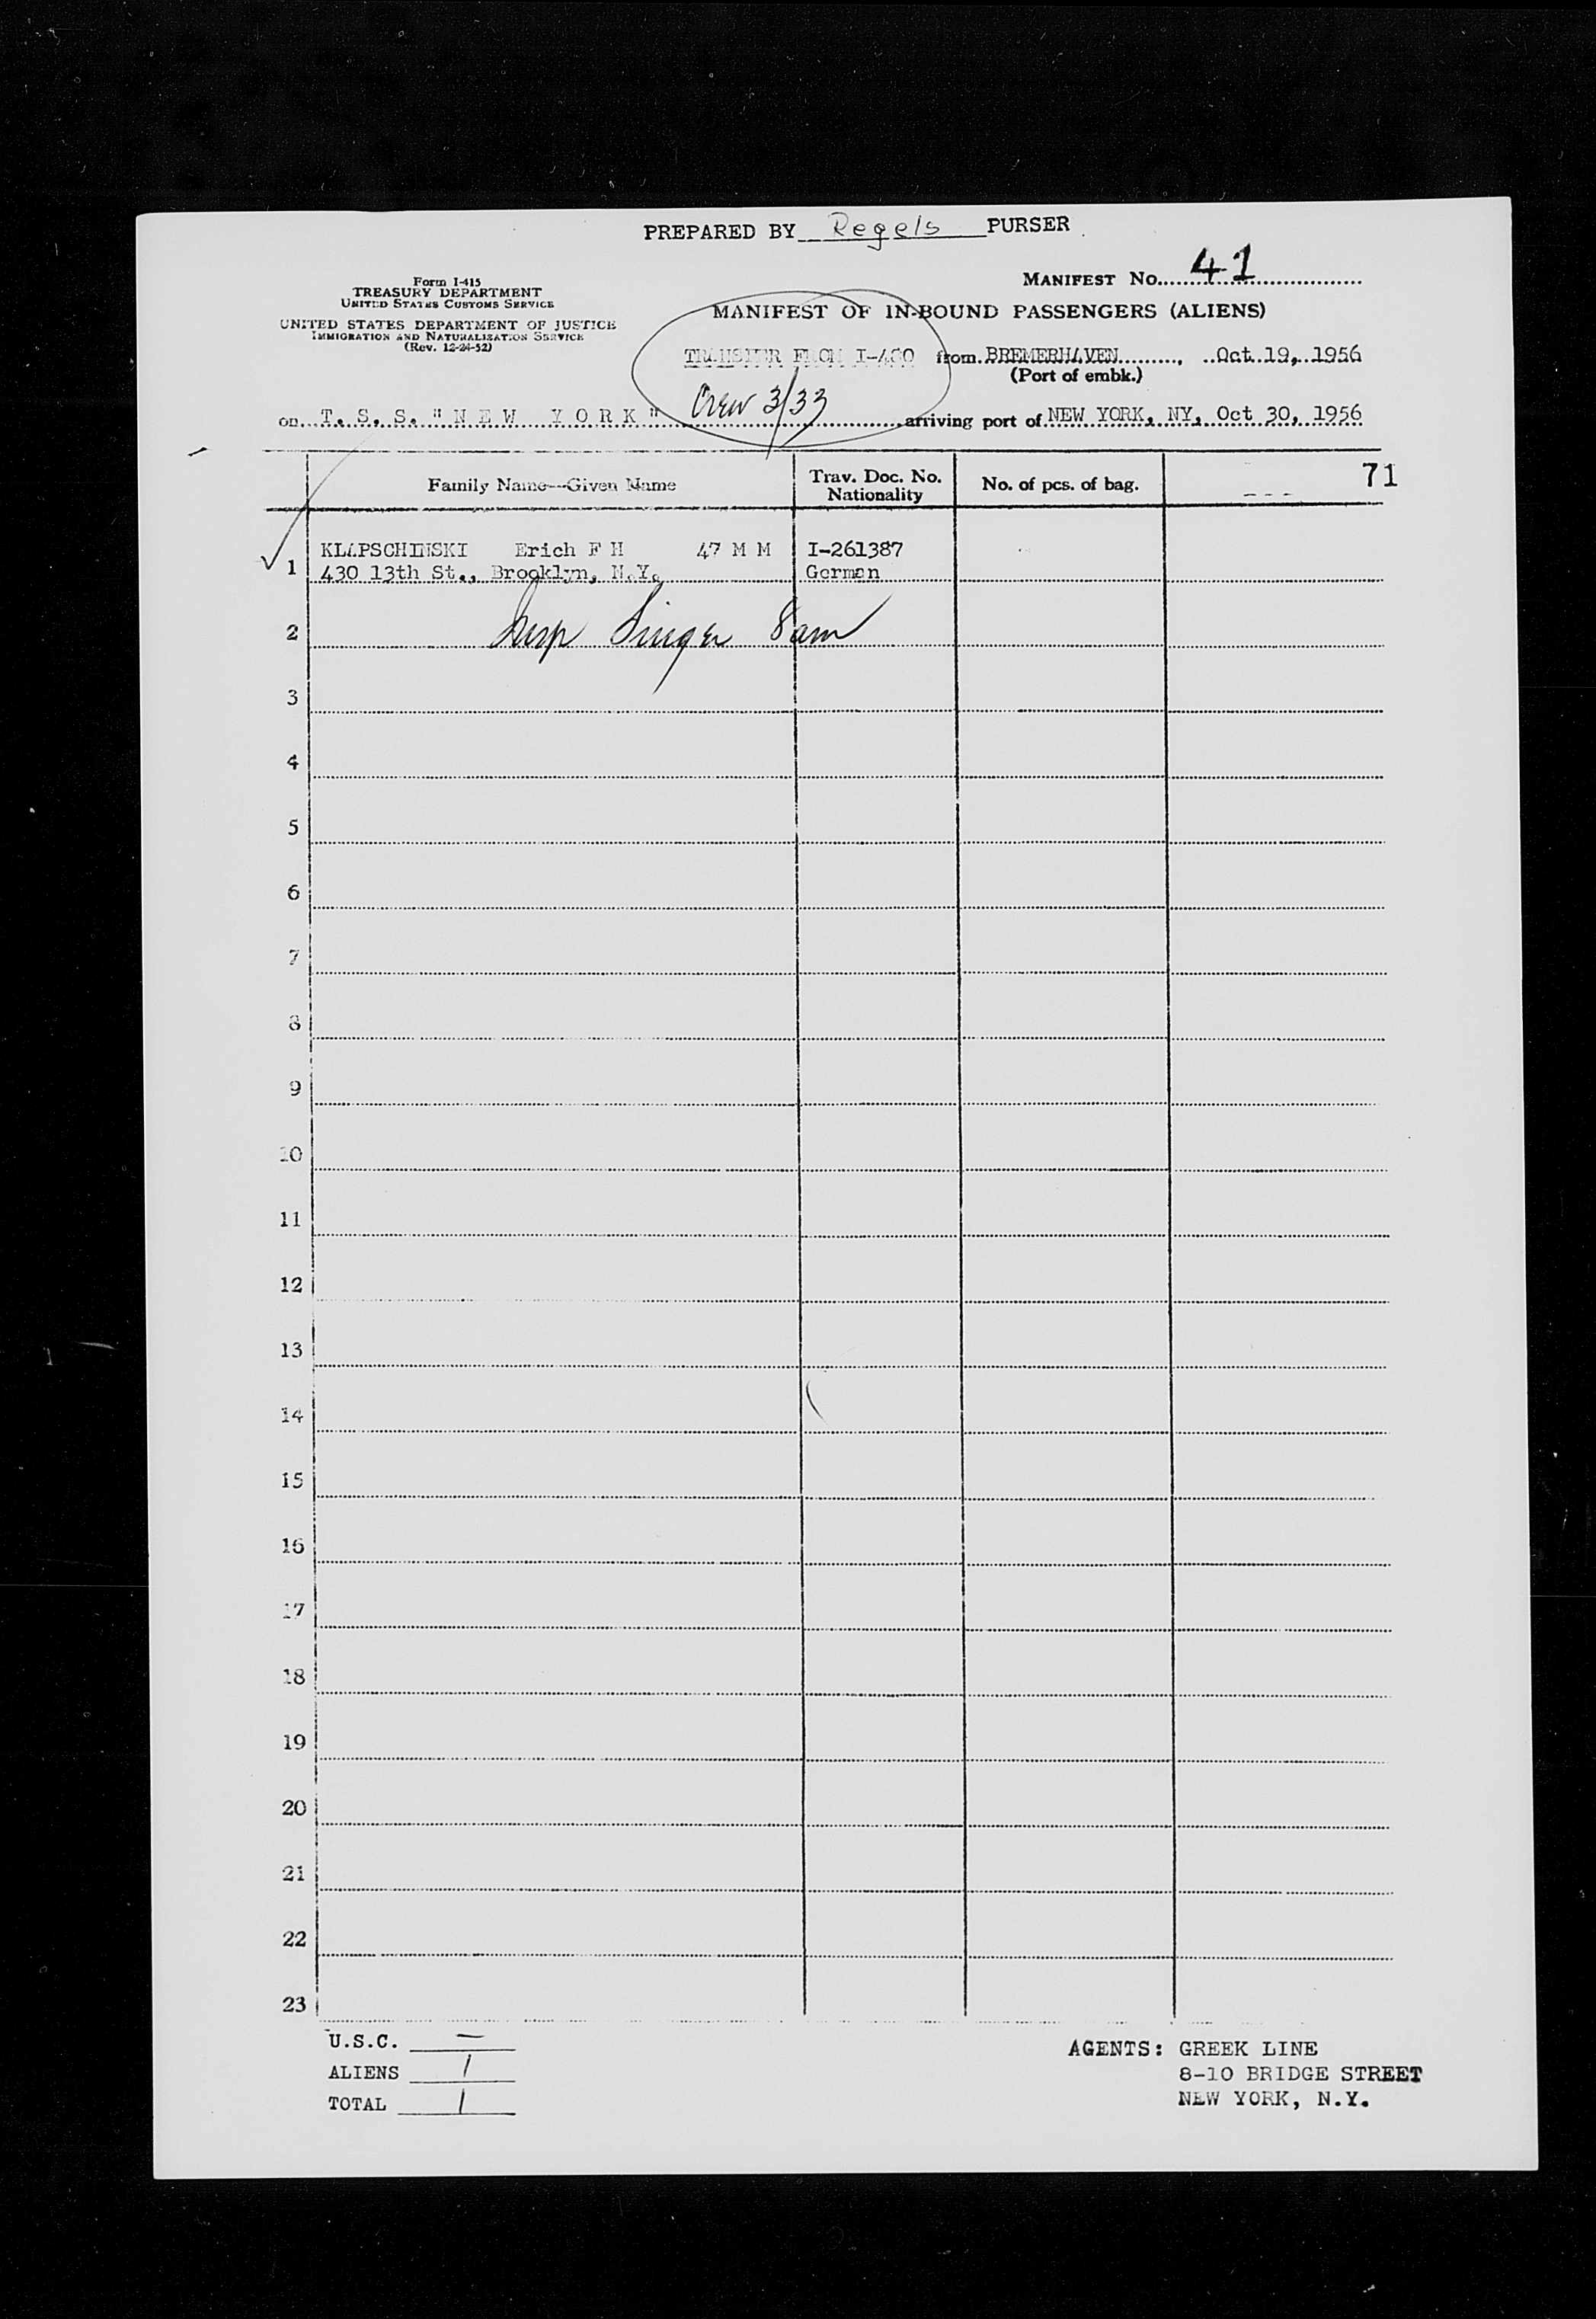 PREPARED BY Regels PURSER
Form I-415
TREASURY DEPARTMENT
UNITED STATES CUSTOMS SERVICE
UNITED STATES DEPARTMENT OF JUSTICE
IMMIGRATION AND NATURALIZATION SERVICE
(Rev. 12-24-52)
MANIFEST NO. 41
MANIFEST OF IN-BOUND PASSENGERS (ALIENS)
TRANSFER FROM I-480 from BREMERHAVEN, Oct 19, 1956
(Port of embk.)
Crew 3/33
on T. S. S. "NEW YORK" arriving port of NEW YORK, NY, Oct 30, 1956
71
Family Name—Given Name Trav. Doc. No. Nationality No. of pcs. of bag. ---
1 KLAPSCHINSKI Erich F H 47 M M I-261387
430 13th St., Brooklyn, N.Y. German
2 Insp Singer 8am
3
4
5
6
7
8
9
10
11
12
13
14
15
16
17
18
19
20
21
22
23
U.S.C. —
ALIENS 1
TOTAL 1
AGENTS: GREEK LINE
8-10 BRIDGE STREET
NEW YORK, N.Y.